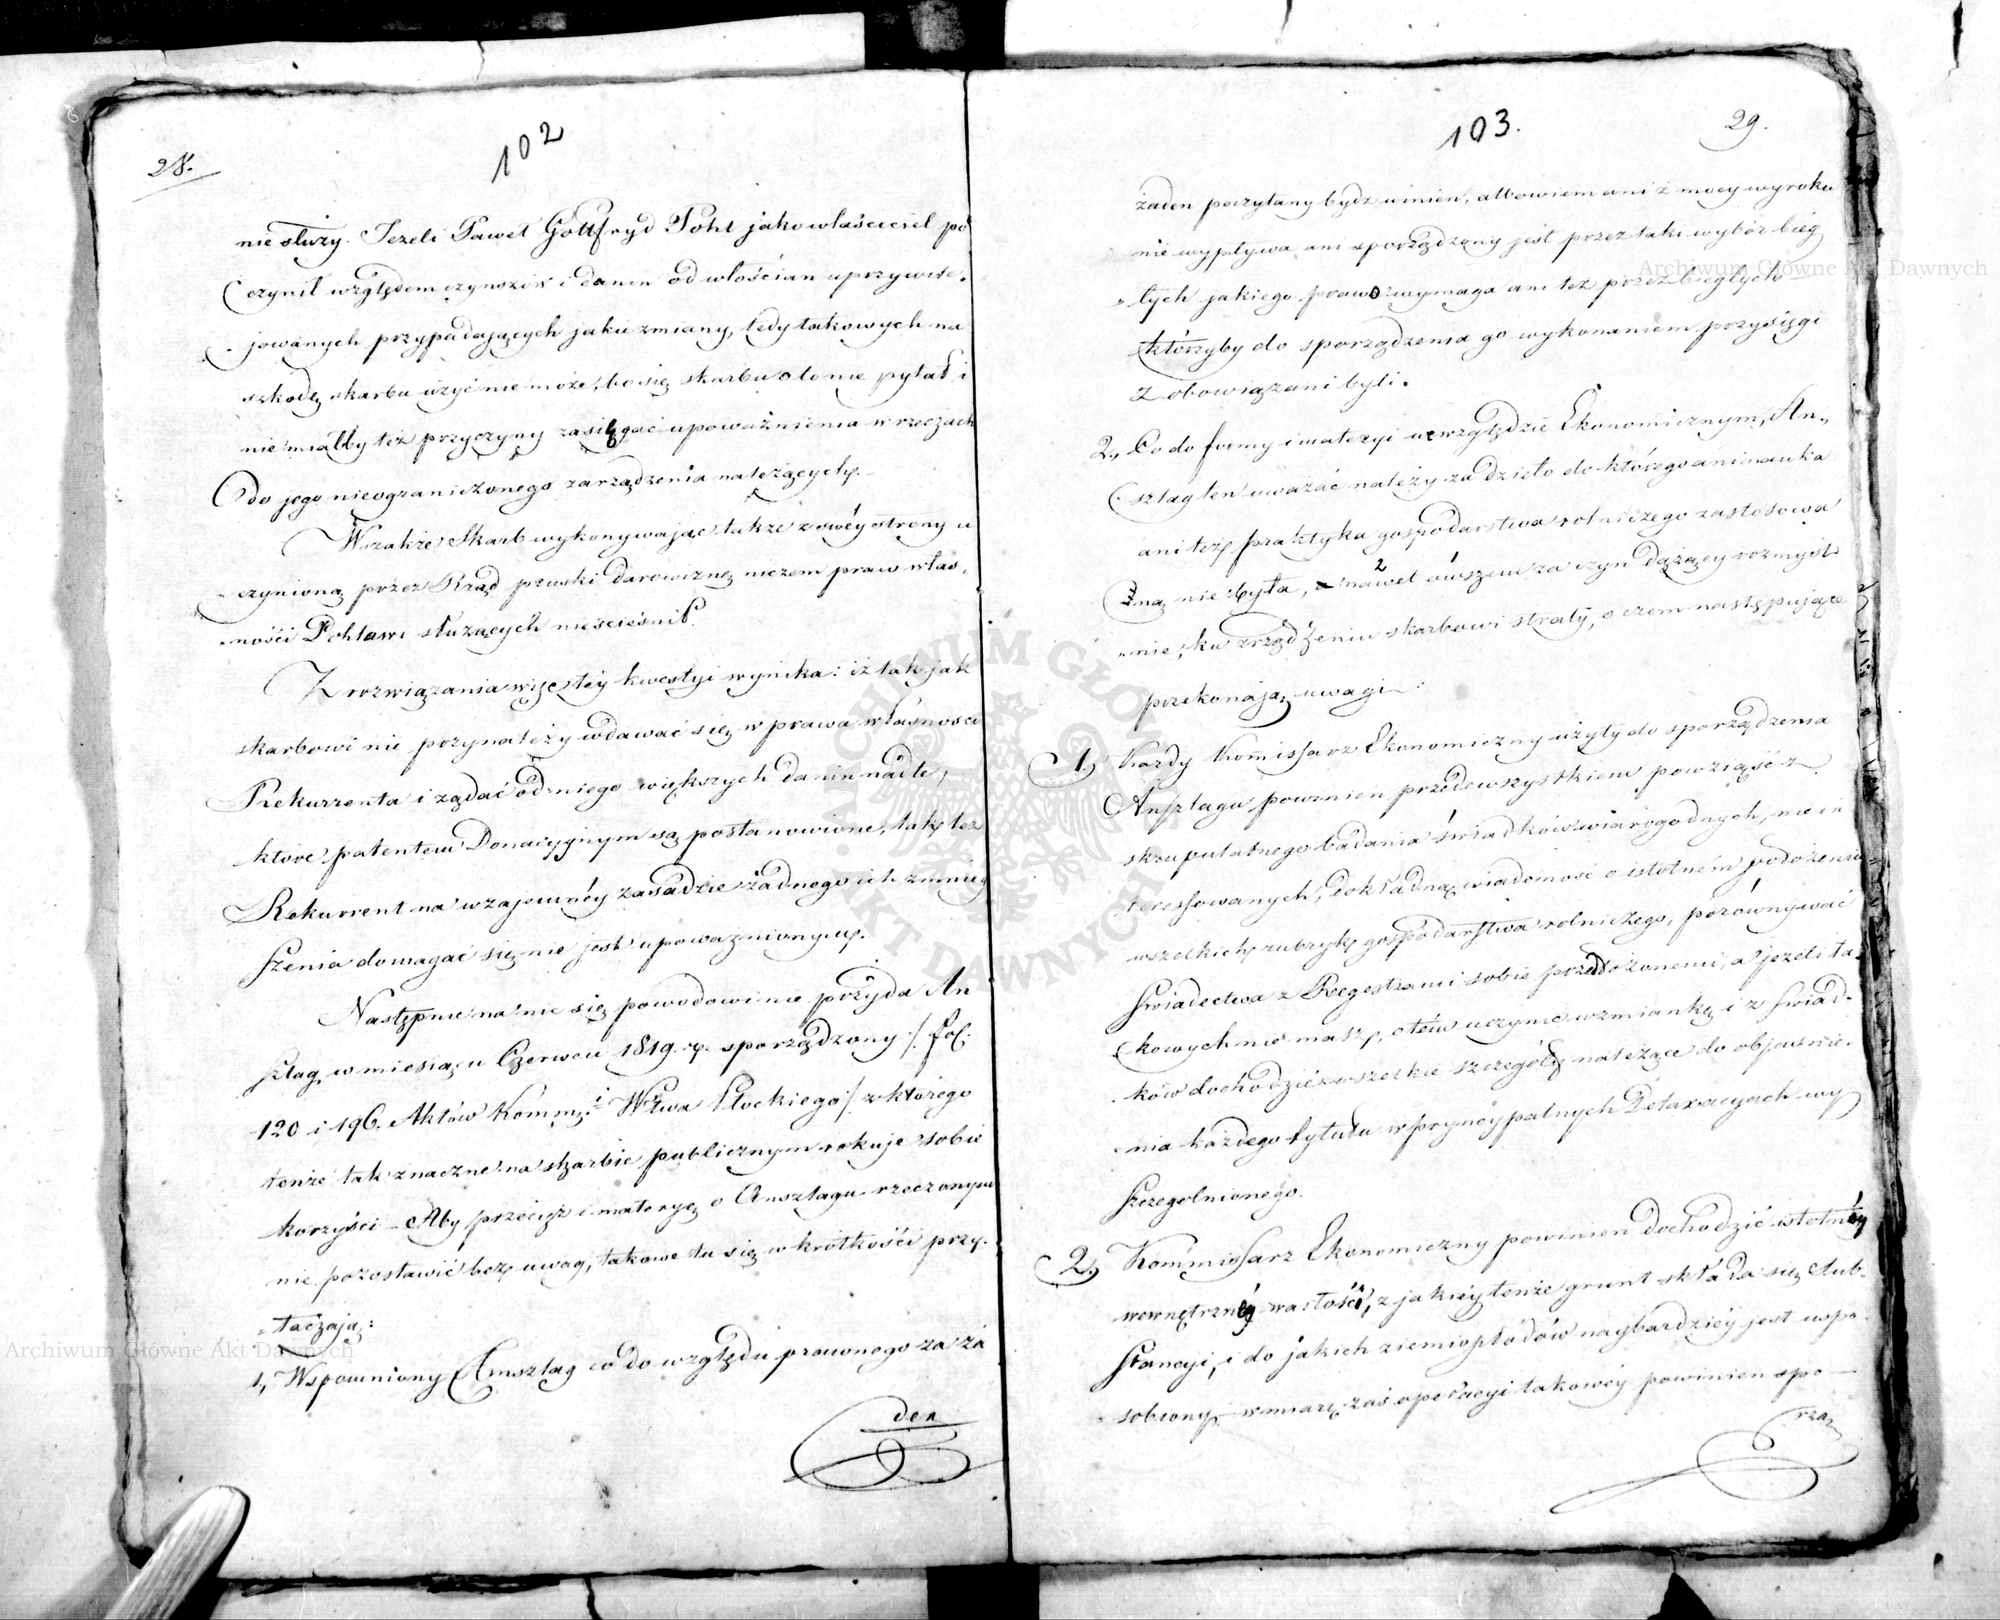 28.
102
nie służy. Jeżeli Paweł Gottfryd Pohl jako właściciel po
czynił względem czynszów i danin od włościan uprzywile,
jowanych przypadających jakie zmiany, tedy takowych na
szkodę skarbu użyć nie może, bo się skarbu o to nie pytał i
nie miałby też przyczyny zasięgać upoważnienia w rzeczach
do jego nieograniczonego zarządzenia należących.
Wszakże Skarb wykonywając także z swéy strony u
czynioną przez Rząd pruski darowiznę niczem praw włas,
ności Pohlowi służących nieścieśnił.
Z rozwiązania więc téy kwestyi wynika: iż tak jak
skarbowi nie przynależy wdawać się w prawa własności
Rekurrenta i żądać od niego większych danin nad te,
które patentem Donacyynym są postanowione, tak też
Rekurrent na wzajemnéy zasadzie żadnego ich zmniey
szenia domagać się nie jest upoważnionym.
Następnie na nic się powodowi nie przyda An
szlag w miesiącu Czerwcu 1819. r. sporządzony /: fol:
120 i 196. Aktów Kommi Wztwa Płockiego / z którego
tenże tak znaczne na skarbie publicznym rokuje sobie
korzyści – Aby przecież i materyę o Anszlagu rzeczonym
nie pozostawić bez uwag, takowe tu się w krótkości przy-
taczają:
1, Wspomniony Anszlag co do względu prawnego za ża
den
103.
29.
żaden poczytany bydz winien, albowiem ani z mocy wyroku
nie wypływa ani sporządzony jest przez taki wybór bieg
łych jakiego prawo wymaga ani też przez biegłych
którzyby do sporządzenia go wykonaniem przysięgi
zobowiązani byli.
2., Co do formy i materyi w względzie Ekonomicznym, An,,
szlag ten uważać należy za dzieło do którego ani nauka
ani też praktyka gospodarstwa rolniczego zastosowa
ną nie była, nawet owszem za czyn dążący rozmyśl
nie, ku zrządzeniu skarbowi straty, o czem następujące
przekonają uwagi:
1, Każdy Kommissarz Ekonomiczny użyty do sporządzenia
Anszlagu powinien przedewszystkiem powziąść z
skrupulatnego badania świadków wiarogodnych, nie in
teressowanych, dokładną wiadomość o istotném położeniu
wszelkich rubryk gospodarstwa rolniczego, porównywać
świadectwa z Regestrami sobie przedłożonemi, a jeżeli ta
kowych nie masz, o tém uczynić wzmiankę i z świad-
ków dochodzić wszelkie szczegóły należące do objaśnie-
nia każdego tytułu w pryncypalnych Detaxacyach wy
szczegolnionego.
2, Kommissarz Ekonomiczny powinien dochodzić istotnéy
wewnętrznéy wartości, z jakiéy tenże grunt składa się Sub-
stancyi, i do jakich ziemiopłodów naybardziéy jest uspo-
sobiony, w miarę zaś operacyi takowéy powinien spo —
rzą